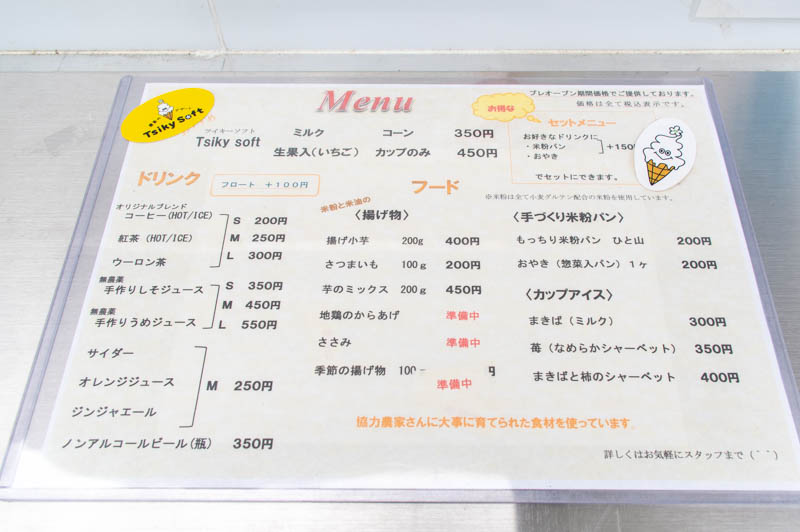 Menu
Tsiky Soft
ツイキーソフト
Tsiky soft
ミルク コーン 350円
生果入(いちご) カップのみ 450円
プレオープン期間価格でご提供しております。
価格は全て税込表示です。
お得な
セットメニュー
お好きなドリンクに
・米粉パン
・おやき
+150
でセットにできます。
※米粉は全て小麦グルテン配合の米粉を使用しています。
ドリンク
フロート +100円
オリジナルブレンド
コーヒー(HOT/ICE)
紅茶(HOT/ICE)
ウーロン茶
S 200円
M 250円
L 300円
無農薬
手作りしそジュース
無農薬
手作りうめジュース
S 350円
M 450円
L 550円
サイダー
オレンジジュース
ジンジャエール
M 250円
ノンアルコールビール(瓶) 350円
フード
米粉と米油の
〈揚げ物〉
揚げ小芋 200g 400円
さつまいも 100g 200円
芋のミックス 200g 450円
地鶏のからあげ 準備中
ささみ 準備中
季節の揚げ物 100 円
準備中
〈手づくり米粉パン〉
もっちり米粉パン ひと山 200円
おやき(惣菜入パン)1ヶ 200円
〈カップアイス〉
まきば(ミルク) 300円
苺(なめらかシャーベット) 350円
まきばと柿のシャーベット 400円
協力農家さんに大事に育てられた食材を使っています。
詳しくはお気軽にスタッフまで(^^)